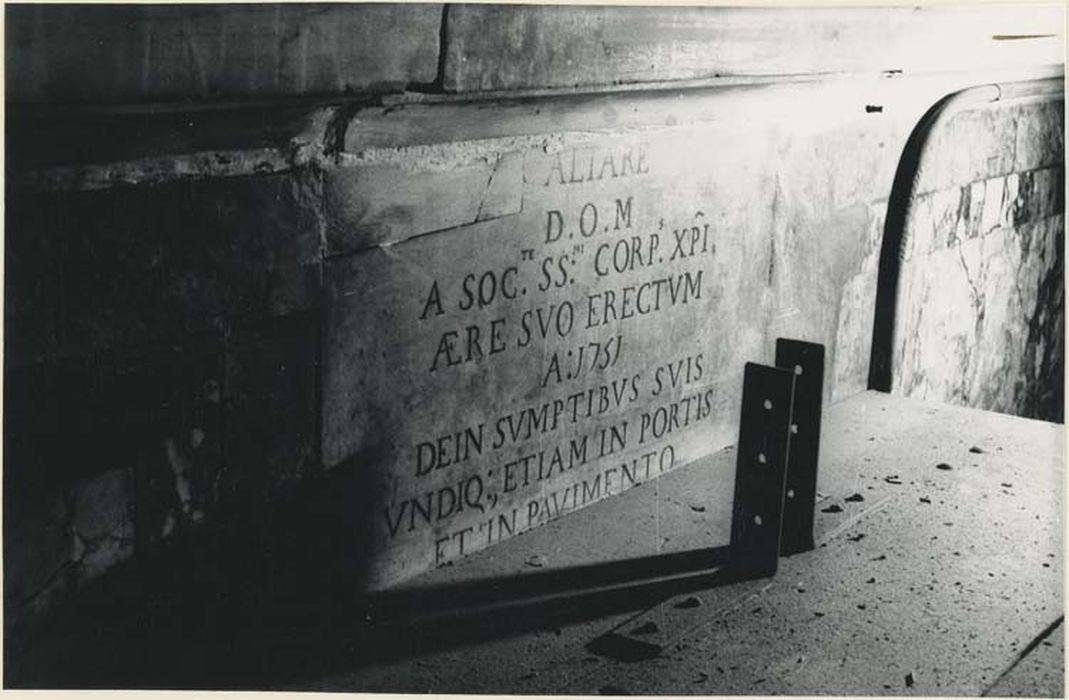 ALTARE
D.O.M
A SOC.TE SS.MI CORP.S XPĨ.
ÆRE SVO ERECTVM
A:1751
DEIN SVMPTIBVS SVIS
VNDIQ; ETIAM IN PORTIS
ET IN PAVIMENTO